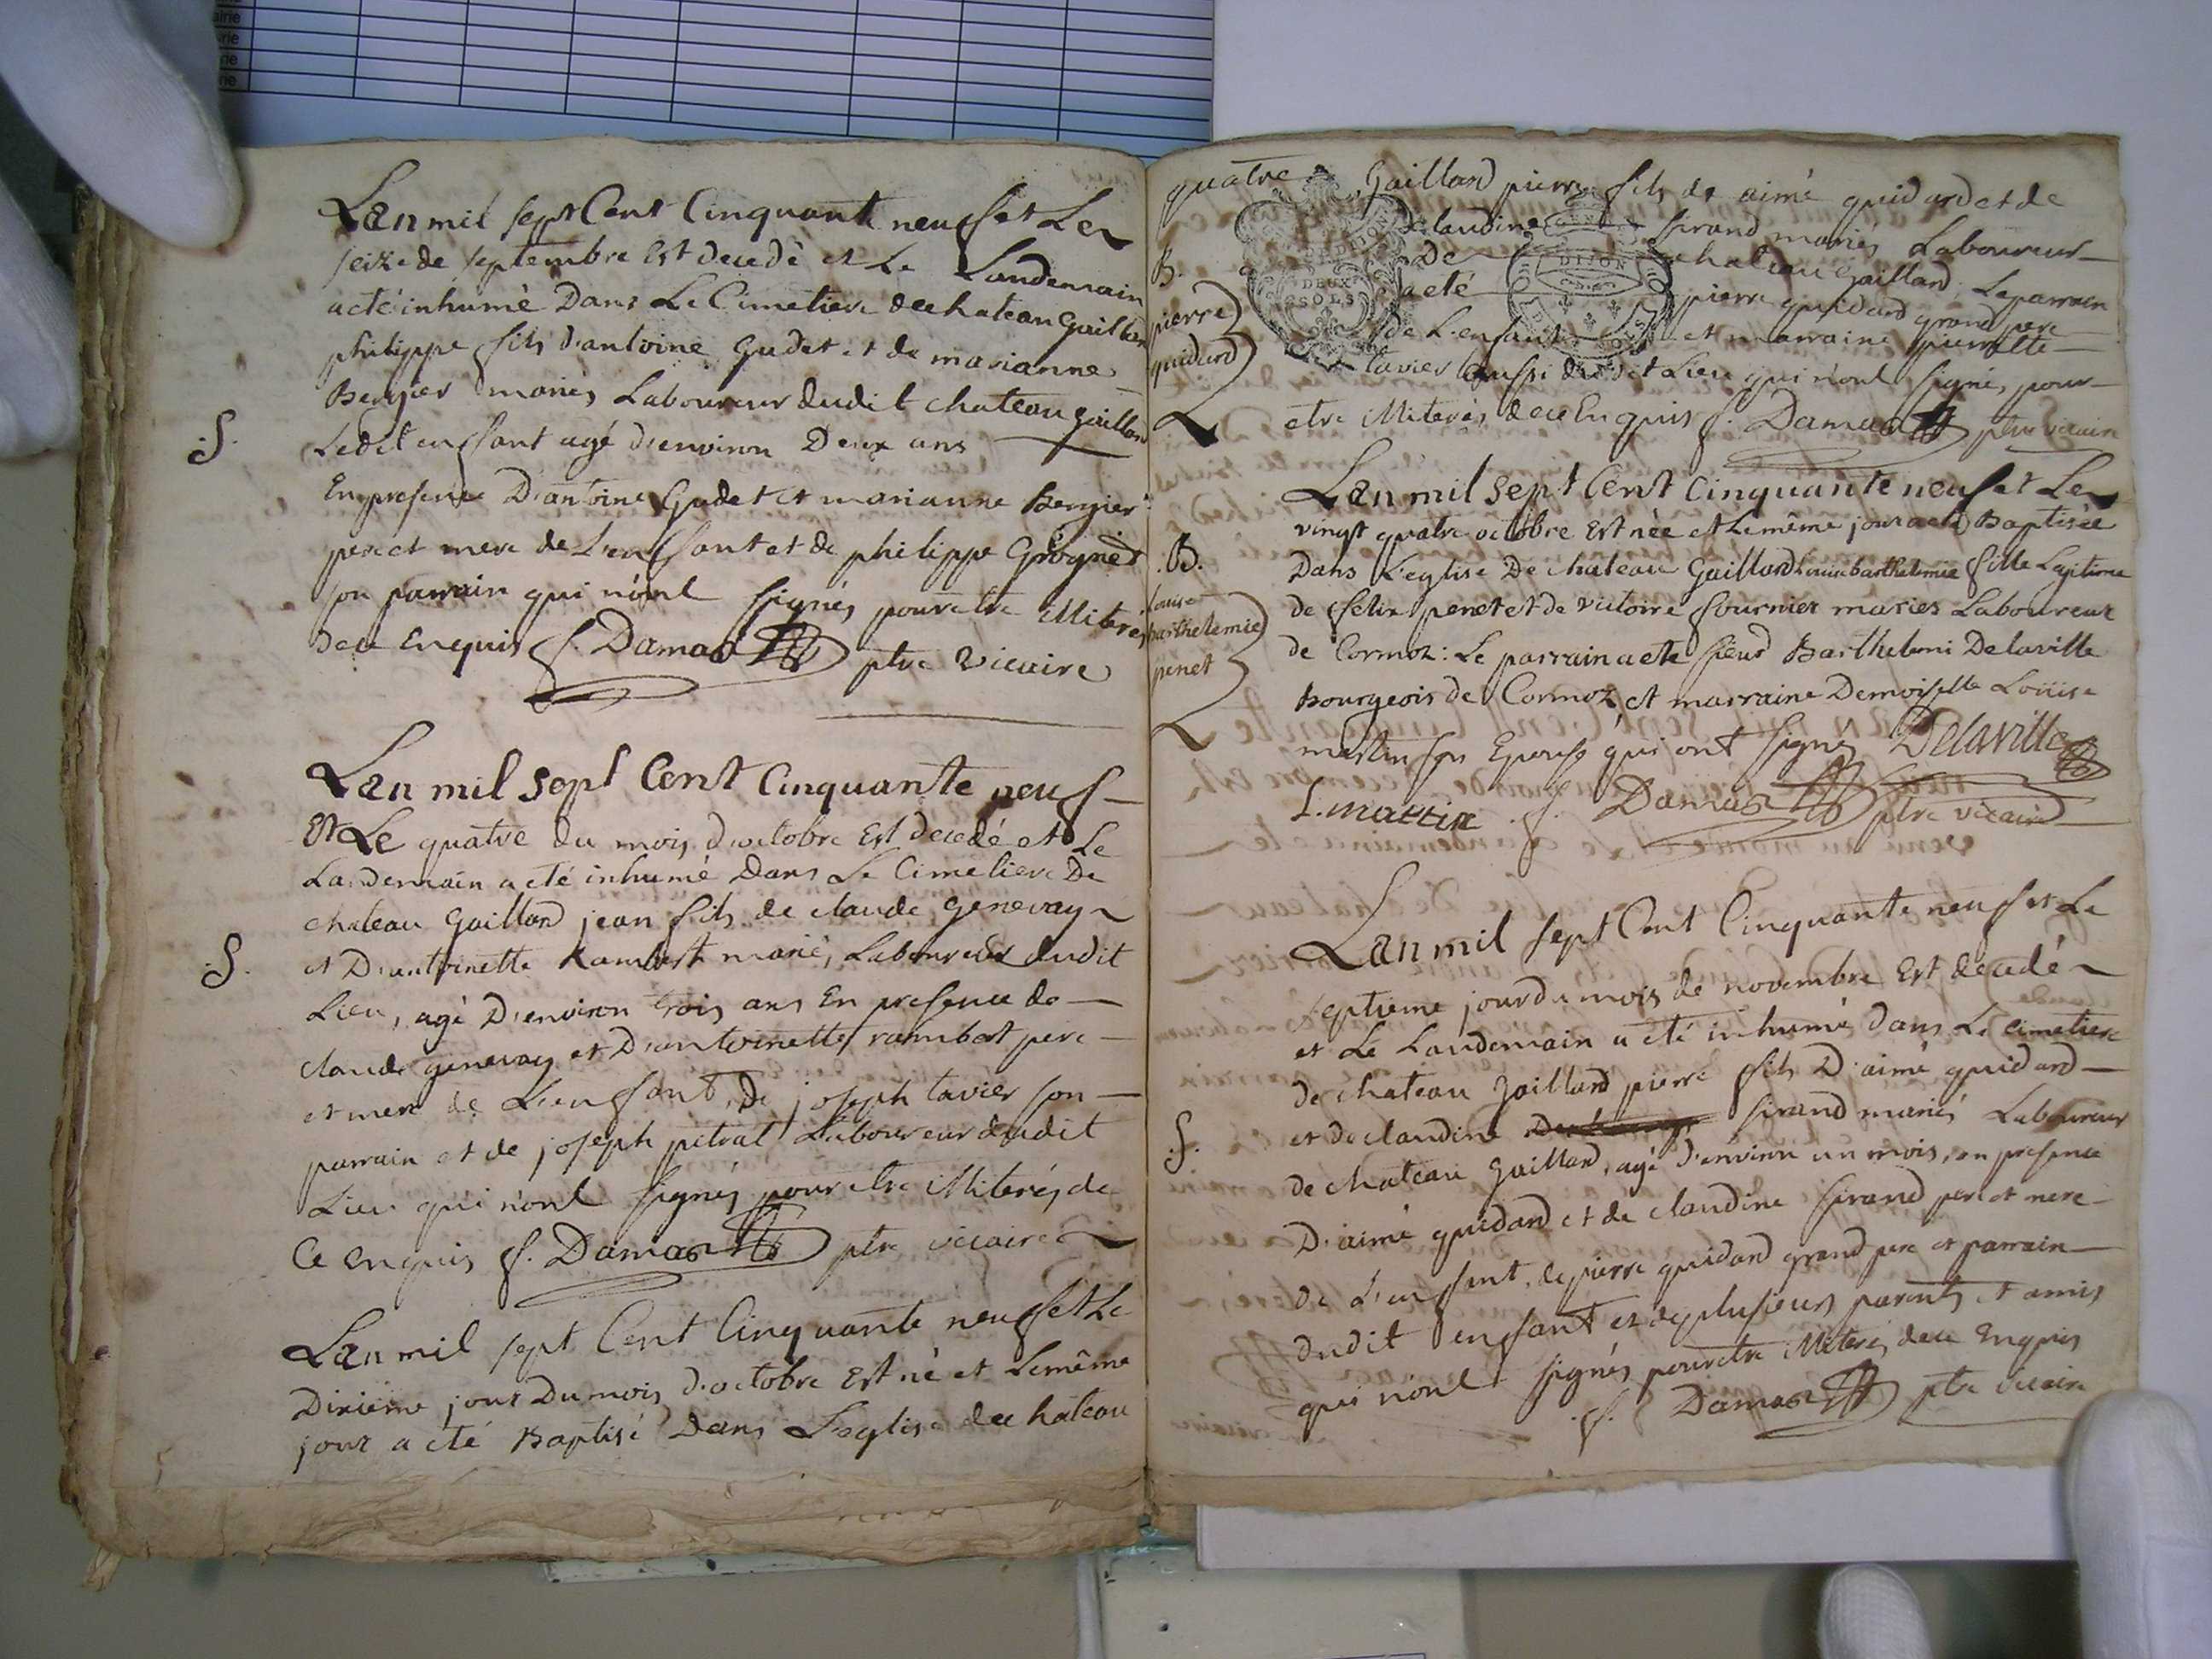 Lan mil sept Cent Cinquante neuf et Le
seize de septembre Est decedé et Le Landemain
a eté inhumé Dans Le Cimetiere de chateau Gaillard
philippe fils d'antoine Gudet et de marianne
Bergier mariés Laboureur dudit chateau gaillard
S.
Ledit enfant agé d'environ Deux ans
En presence D'antoine Gudet et marianne Bergier
pere et mere de L'enfant et de philippe Grognet
son parrain qui n'ont signés pour etre illiteres
de ce Enquis f. Damas ptre Vicaire
Lan mil sept Cent Cinquante neuf
Et Le quatre du mois d'octobre Est decedé et Le
Landemain a eté inhumé Dans Le Cimetiere De
chateau Gaillard jean fils de claude genevay
S.
et D'antoinette Rambert mariés Laboureur dudit
Lieu, agé D'environ trois ans En presence de
claude genevay et D'antoinette rambert pere
et mere de L'enfant, de joseph tavier son
parrain et de joseph pitrat Laboureur dudit
Lieu qui n'ont signés pour etre illiterés de
Ce enquis f. Damas ptre vicaire
Lan mil sept Cent Cinquante neuf et Le
Dixieme jour Du mois d'octobre Est né et Le même
jour a eté Baptisé Dans L'eglise de chateau
quatre
Gaillard pierre fils de aimé guidard et de
claudine sirand mariés Laboureur
B.
De chateau gaillard Le parrain
pierre
a eté pierre guidard grand pere
guidard
de L'enfant et marraine pierrette
tavier aussi dudit Lieu qui n'ont signés pour
etre illiterés de ce Enquis f. Damas ptre vicaire
Lan mil sept Cent Cinquante neuf et Le
vingt quatre octobre Est née et Le même jour a eté Baptisée
B.
Dans L'eglise De chateau Gaillard Louise barthelemie fille Legitime
Louise
de felix penet et de victoire fournier mariés Laboureur
barthelemie
de Cormoz: Le parrain a eté sieur Barthelemi Delaville
penet
Bourgeois de Cormoz, et marraine Demoiselle Louise
martin son Epouse qui ont signé Delaville
L. martin f. Damas ptre vicaire
Lan mil sept Cent Cinquante neuf et Le
septieme jour du mois de novembre Est decedé
et Le Landemain a eté inhumé dans Le cimetiere
de chateau gaillard pierre fils D'aimé guidard
S.
et de claudine sirand mariés Laboureur
de chateau Gaillard, agé d'environ un mois, en presence
D'aimé guidard et de claudine sirand pere et mere
de L'enfant, de pierre guidard grand pere et parrain
dudit enfant et de plusieurs parents et amis
qui n'ont signés pour etre illiterés de ce Enquis
f. Damas ptre vicaire
DEUX
SOLS
DIJON